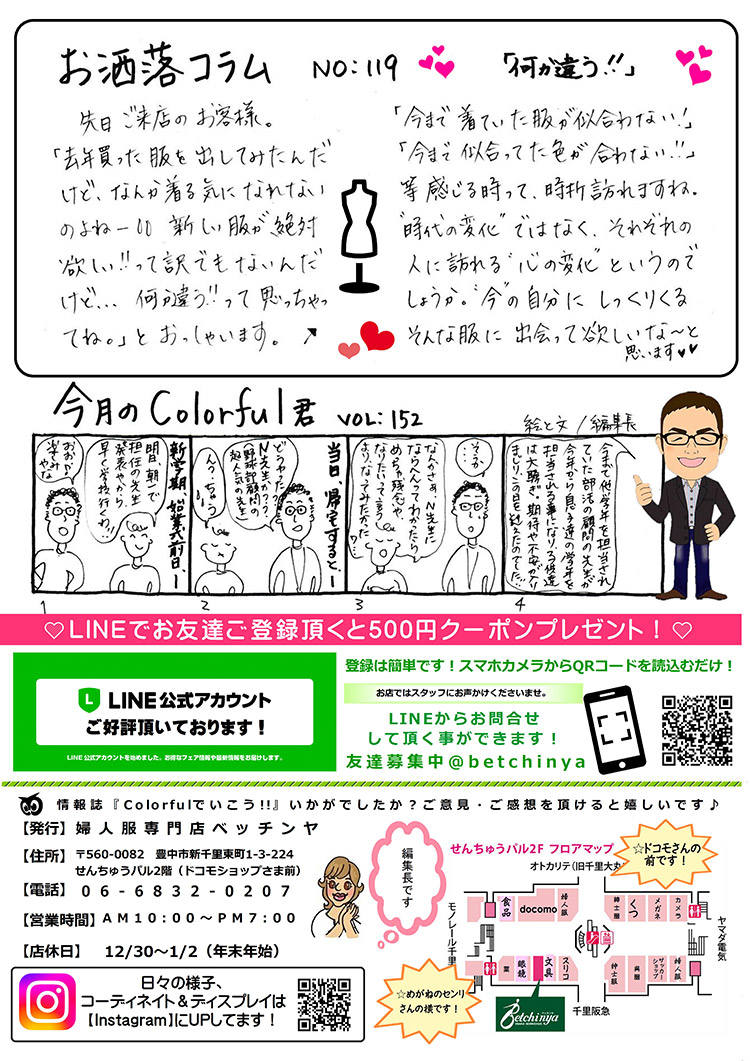 お洒落コラム NO:119 「何が違う!!」
先日ご来店のお客様。
「去年買った服を出してみたんだ
けど、なんか着る気になれない
のよねー!! 新しい服が絶対
欲しい!!って訳でもないんだ
けど… 何が違う!!って思っちゃっ
てね。」とおっしゃいます。
「今まで着ていた服が似合わない!」
「今まで似合ってた色が合わない!!」
等感じる時って、時折訪れますね。
"時代の変化"ではなく、それぞれの
人に訪れる"心の変化"というので
しょうか。"今"の自分にしっくりくる
そんな服に出会って欲しいな〜と
思います
今月のColorful君 VOL:152
絵と文/編集長
新学期、始業式前日、ー
明日、朝で
担任の先生
発表やから
早く学校行くわ!!
おお!!
楽しみ
やな
1
当日、帰宅すると、ー
どうやった?
N先生か??
(野球部顧問の
超人気の先生)
んっ
ちゅう
2
そっか、
なんかさぁ、N先生に
ならへんってわかったら
めっちゃ残念や、
なりたいって言う
3
今まで他学年を担当され
ていた部活の顧問の先生が
今年から息子達の学年を
担当される事になり、子供達
は大騒ぎ。期待や不安が入り
まじり、この日を迎えたのでした…
4
♡LINEでお友達ご登録頂くと500円クーポンプレゼント！♡
LINE公式アカウント
ご好評頂いております！
LINE公式アカウントを始めました。お得なフェア情報や最新情報をお届けします。
登録は簡単です！スマホカメラからQRコードを読込むだけ！
お店ではスタッフにお声かけくださいませ。
LINEからお問合せ
して頂く事ができます！
友達募集中@betchinya
情報誌『Colorfulでいこう!!』いかがでしたか？ご意見・ご感想を頂けると嬉しいです♪
【発行】婦人服専門店ベッチンヤ
【住所】〒560-0082 豊中市新千里東町1-3-224
せんちゅうパル2階（ドコモショップさま前）
【電話】06-6832-0207
【営業時間】AM10:00〜PM7:00
【店休日】 12/30〜1/2（年末年始）
日々の様子、
コーディネイト＆ディスプレイは
【Instagram】にUPしてます！
編集長です
せんちゅうパル2F フロアマップ
オトカリテ(旧千里大丸
☆ドコモさんの
前です！
モノレール千里
食品
docomo
婦人服
紳士服
くつ
メガネ
カメラ
ヤマダ電気
薬
眼鏡
文具
スリコ
紳士服
呉服
サッカーショップ
婦人服
千里阪急
☆めがねのセンリ
さんの横です！
Betchinya